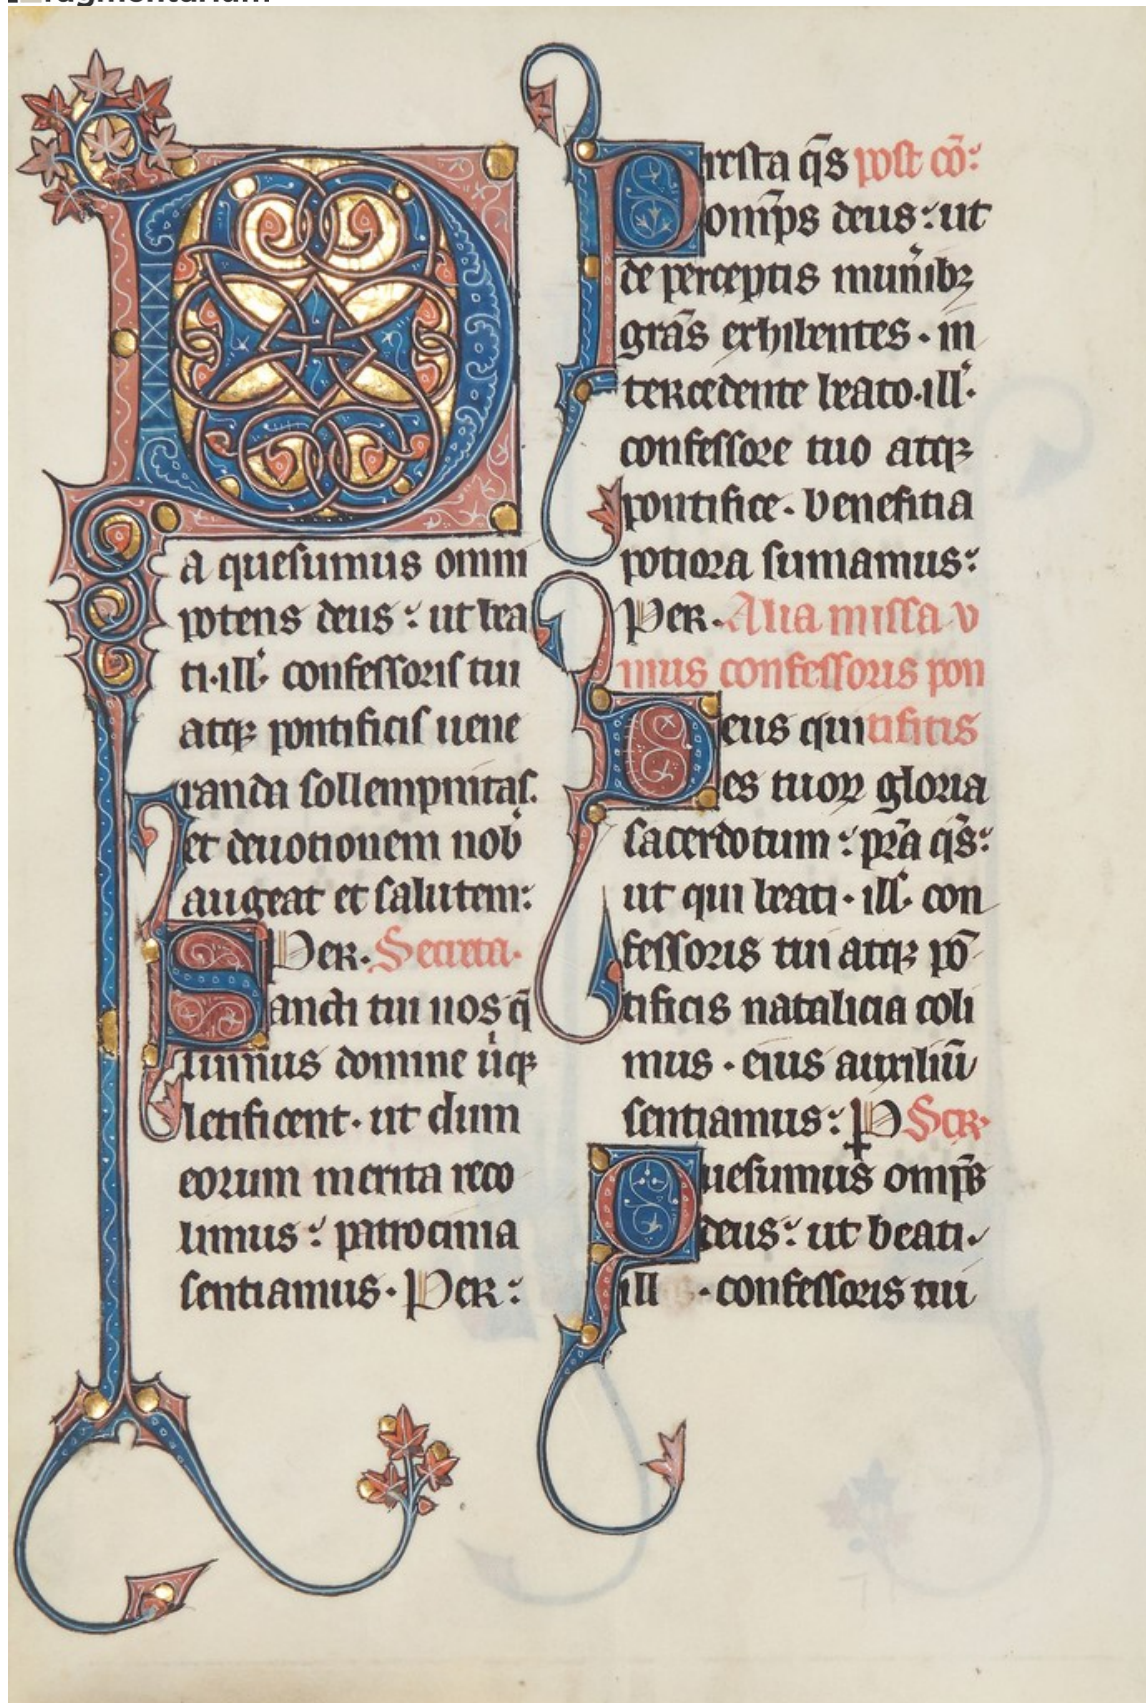 Da quesumus omni
potens deus: ut bea
ti·ill'· confessoris tui
atqꝫ pontificis uene
randa sollempnitas.
et deuotionem nob'
augeat et salutem:
Per. Secreta.
Sancti tui nos q̄
sumus domine u̍iqꝫ
letificent· ut dum
eorum merita reco
limus: patrocinia
sentiamus· Per:
Presta q̄s post cō:
om̄ps deus: ut
de perceptis mun̍ibꝫ
gr̄as exhibentes· in
tercedente beato·ill'·
confessore tuo atqꝫ
pontifice· benefitia
potiora sumamus:
Per. Alia missa v
nius confessoris pon
Deus qui tificis
es tuoꝝ gloria
sacerdotum: pr̄a q̄s:
ut qui beati· ill'· con
fessoris tui atqꝫ pō
tificis natalicia coli
mus· eius auxiliū
sentiamus: P Secr.
Quesumus om̄ps
deus: ut beati·
ill · confessoris tui